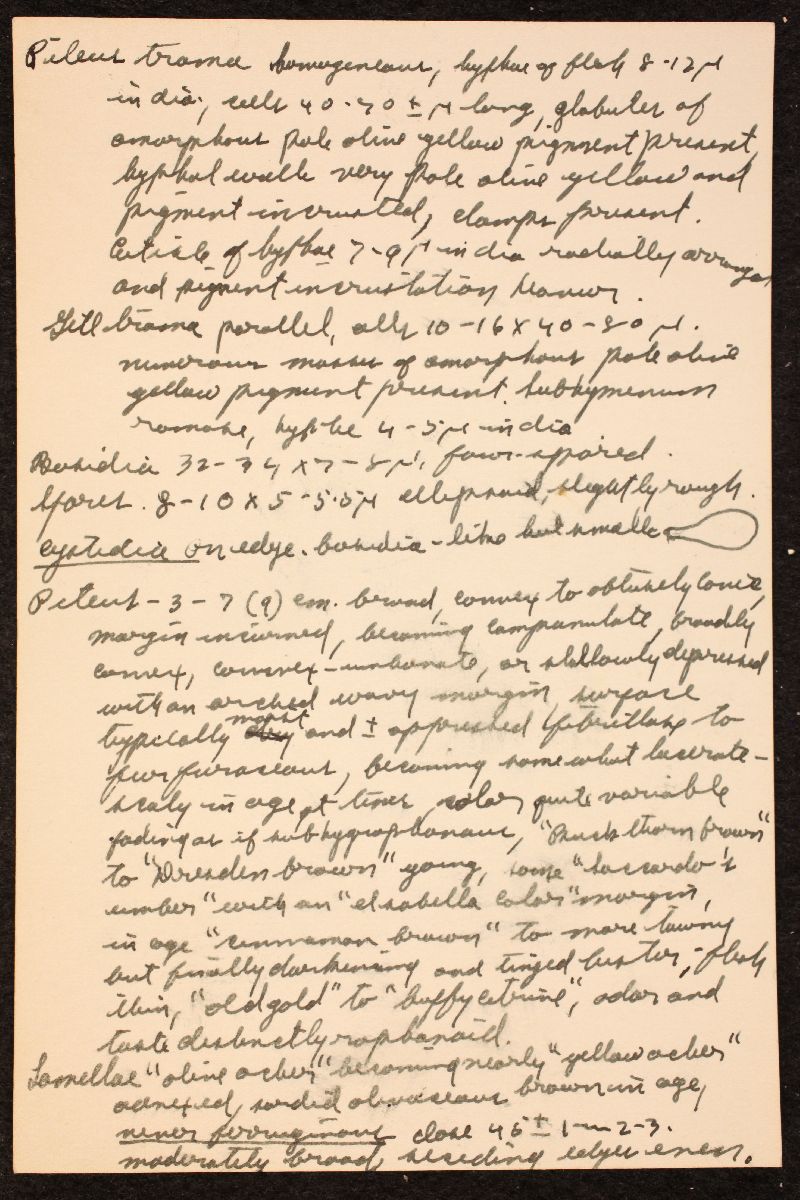 Pileus trama homogeneous, hyphae of flesh 8-12 μ
in dia., cells 40-70 ± μ long, globules of
amorphous pale olive yellow pigment present,
hyphal walls very pale olive yellow and
pigment incrusted, clamps present.
Cuticle of hyphae 7-9 μ in dia radially arranged
and pigment incrustation heavier.
Gill trama parallel, cells 10-16 x 40-80 μ.
numerous masses of amorphous pale olive
yellow pigment present. Subhymenium
ramose, hyphae 4-5 μ in dia
Basidia 32-34 x 7-8 μ, four-spored.
Spores. 8-10 x 5-5.5 μ ellipsoid, slightly rough.
Cystidia on edge. basidia-like but smaller
Pileus - 3-7 (9) cm. broad, convex to obtusely conic,
margin incurved, becoming campanulate, broadly
convex, convex-umbonate, or shallowly depressed
with an arched wavy margin, surface
typically moist and ± appressed fibrillose to
furfuraceous, becoming somewhat lacerate-
scaly in age at times, color quite variable
fading as if subhygrophanous, "Buckthorn brown"
to "Dresden brown" young, some "Saccardo's
umber" with an "isabella color" margin,
in age "cinnamon brown" to more tawny
but finally darkening and tinged bister, - flesh
thin, "old gold" to "buffy citrine", odor and
taste distinctly raphanoid.
Lamellae "olive ocher" becoming nearly "yellow ocher"
adnexed, sordid olivaceous brown in age,
never ferruginous close 45 ± 1- 2-3.
moderately broad, seceding edges even.